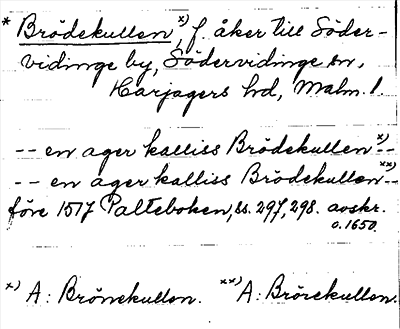 * Brödekullen x), f. åker till Söder-
vidinge by, Södervidinge sn,
Harjagers hd, Malm. l.
-- en ager kalliss Brödekullen x)--
-- en ager kalliss Brödekullen xx)--
före 1517 Palteboken, ss. 297, 298. avskr.
o. 1650.
x) A: Brönekullen. xx) A: Brörekullen.